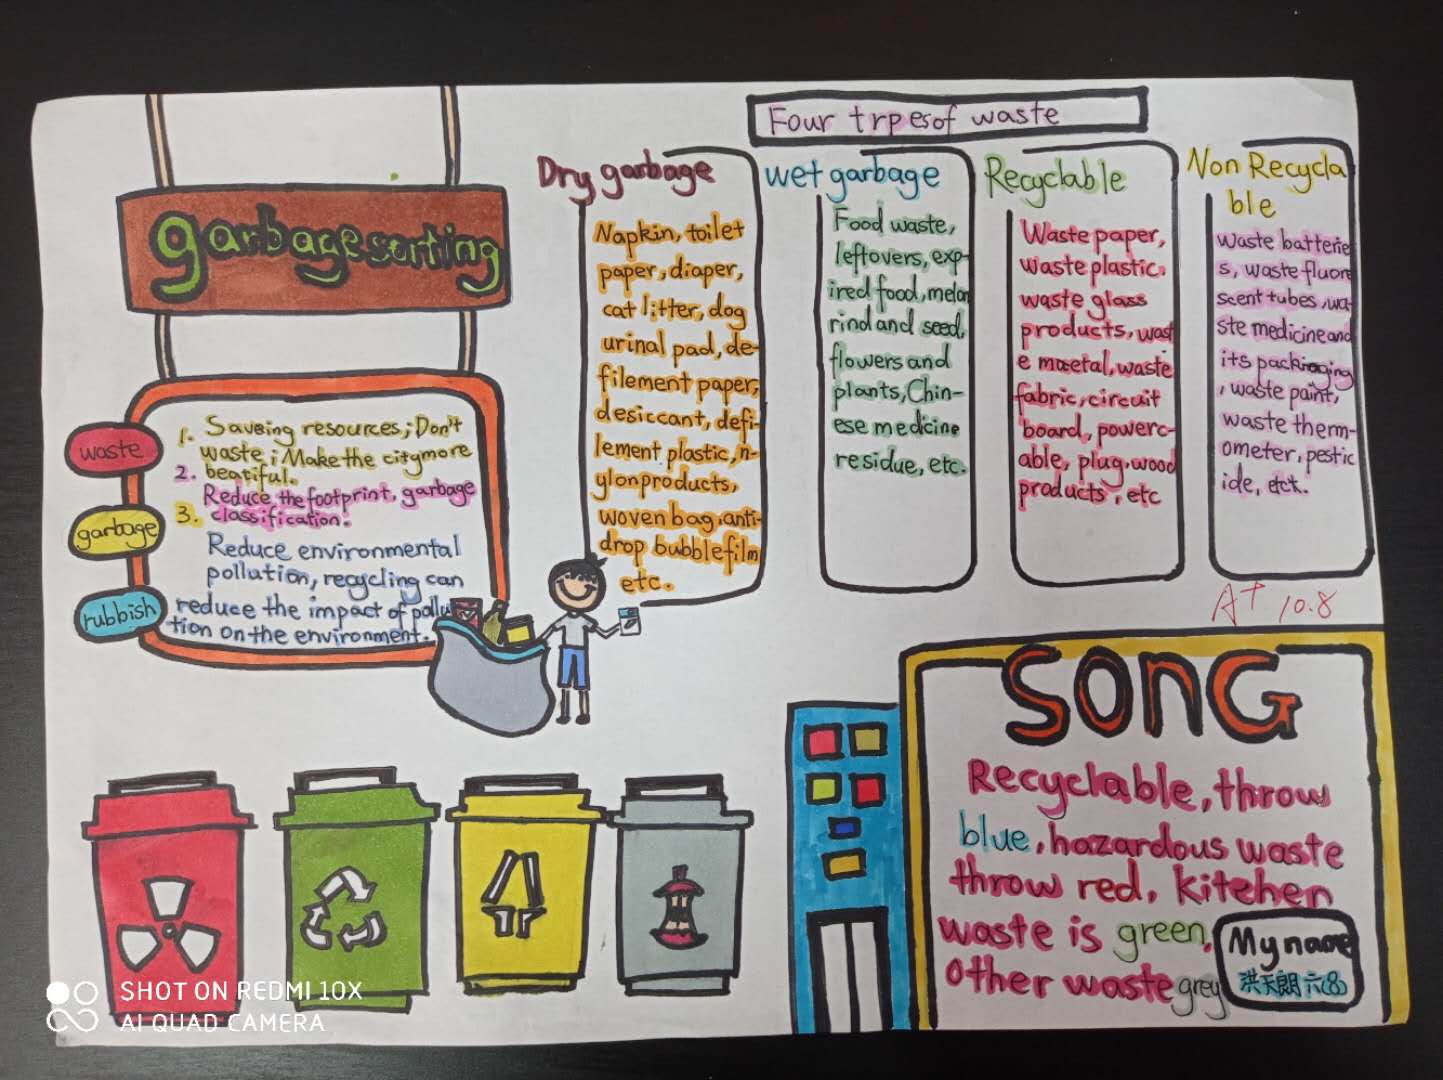 garbage sorting
waste
garbage
rubbish
1. Saveing resources,; Don't
waste,; Make the city more
2. beatiful.
Reduce the footprint, garbage
3. classification.
Reduce environmental
pollution, recycling can
reduce the impact of pollu
tion on the environment.
Four trpes of waste
Dry garbage
Napkin, toilet
paper, diaper,
cat litter, dog
urinal pad, de-
filement paper,
desiccant, defi-
lement plastic, n-
ylon products,
woven bag, anti-
drop bubble film
etc.
wet garbage
Food waste,
leftovers, exp-
ired food, melon
rind and seed,
flowers and
plants, Chin-
ese medicine
residue, etc.
Recyclable
Waste paper,
waste plastic,
waste glass
products, wast
e metal, waste
fabric, circuit
board, powerc-
able, plug, wood
products, etc
Non Recycla
ble
waste batterie
s, waste fluore
scent tubes, wa-
ste medicine and
its packaging
, waste paint,
waste therm-
ometer, pestic
ide, etc.
A+ 10.8
SONG
Recyclable, throw
blue, hazardous waste
throw red, kitchen
waste is green,
Other waste grey
My name
洪天朗 六(8)
SHOT ON REDMI 10X
AI QUAD CAMERA